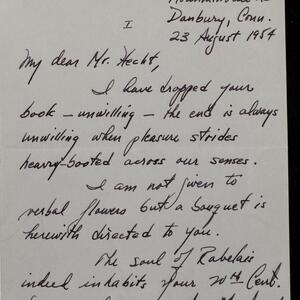 Danbury, Conn.
I
23 August 1954
My dear Mr. Hecht,
I have dropped your
book — unwilling — the end is always
unwilling when pleasure strides
heavy-booted across our senses.
I am not given to
verbal flowers but a bouquet is
herewith directed to you.
The soul of Rabelais
indeed inhabits your 20th Cent.